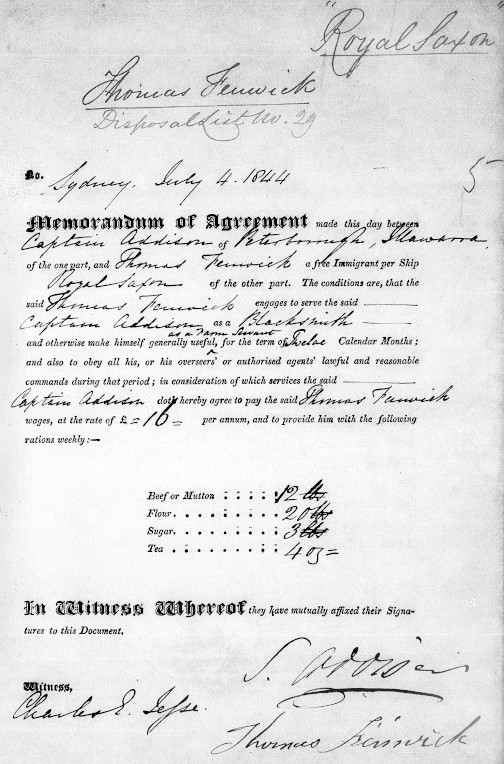 "Royal Saxon"
Thomas Fenwick
Disposal List No. 29
No.
5
Sydney. July 4. 1844
Memorandum of Agreement made this day between
Captain Addison of Peterborough, Illawarra,
of the one part, and Thomas Fenwick a free Immigrant per Ship
Royal Saxon of the other part. The conditions are, that the
said Thomas Fenwick engages to serve the said
Captain Addison as a Blacksmith
as a Farm Servant
and otherwise make himself generally useful, for the term of Twelve Calendar Months;
and also to obey all his, or his overseers' or authorised agents' lawful and reasonable
commands during that period; in consideration of which services the said
Captain Addison doth hereby agree to pay the said Thomas Fenwick
wages, at the rate of £=16= per annum, and to provide him with the following
rations weekly:—
Beef or Mutton : : : : : 12 lbs
Flour. . . . . . . . . 20 lbs
Sugar. . . . . . . . . 3 lbs
Tea . . . . . . . . . 4 oz=
In Witness Whereof they have mutually affixed their Signa-
tures to this Document.
S. Addison
Witness,
Charles E. Jesse.
Thomas Fenwick